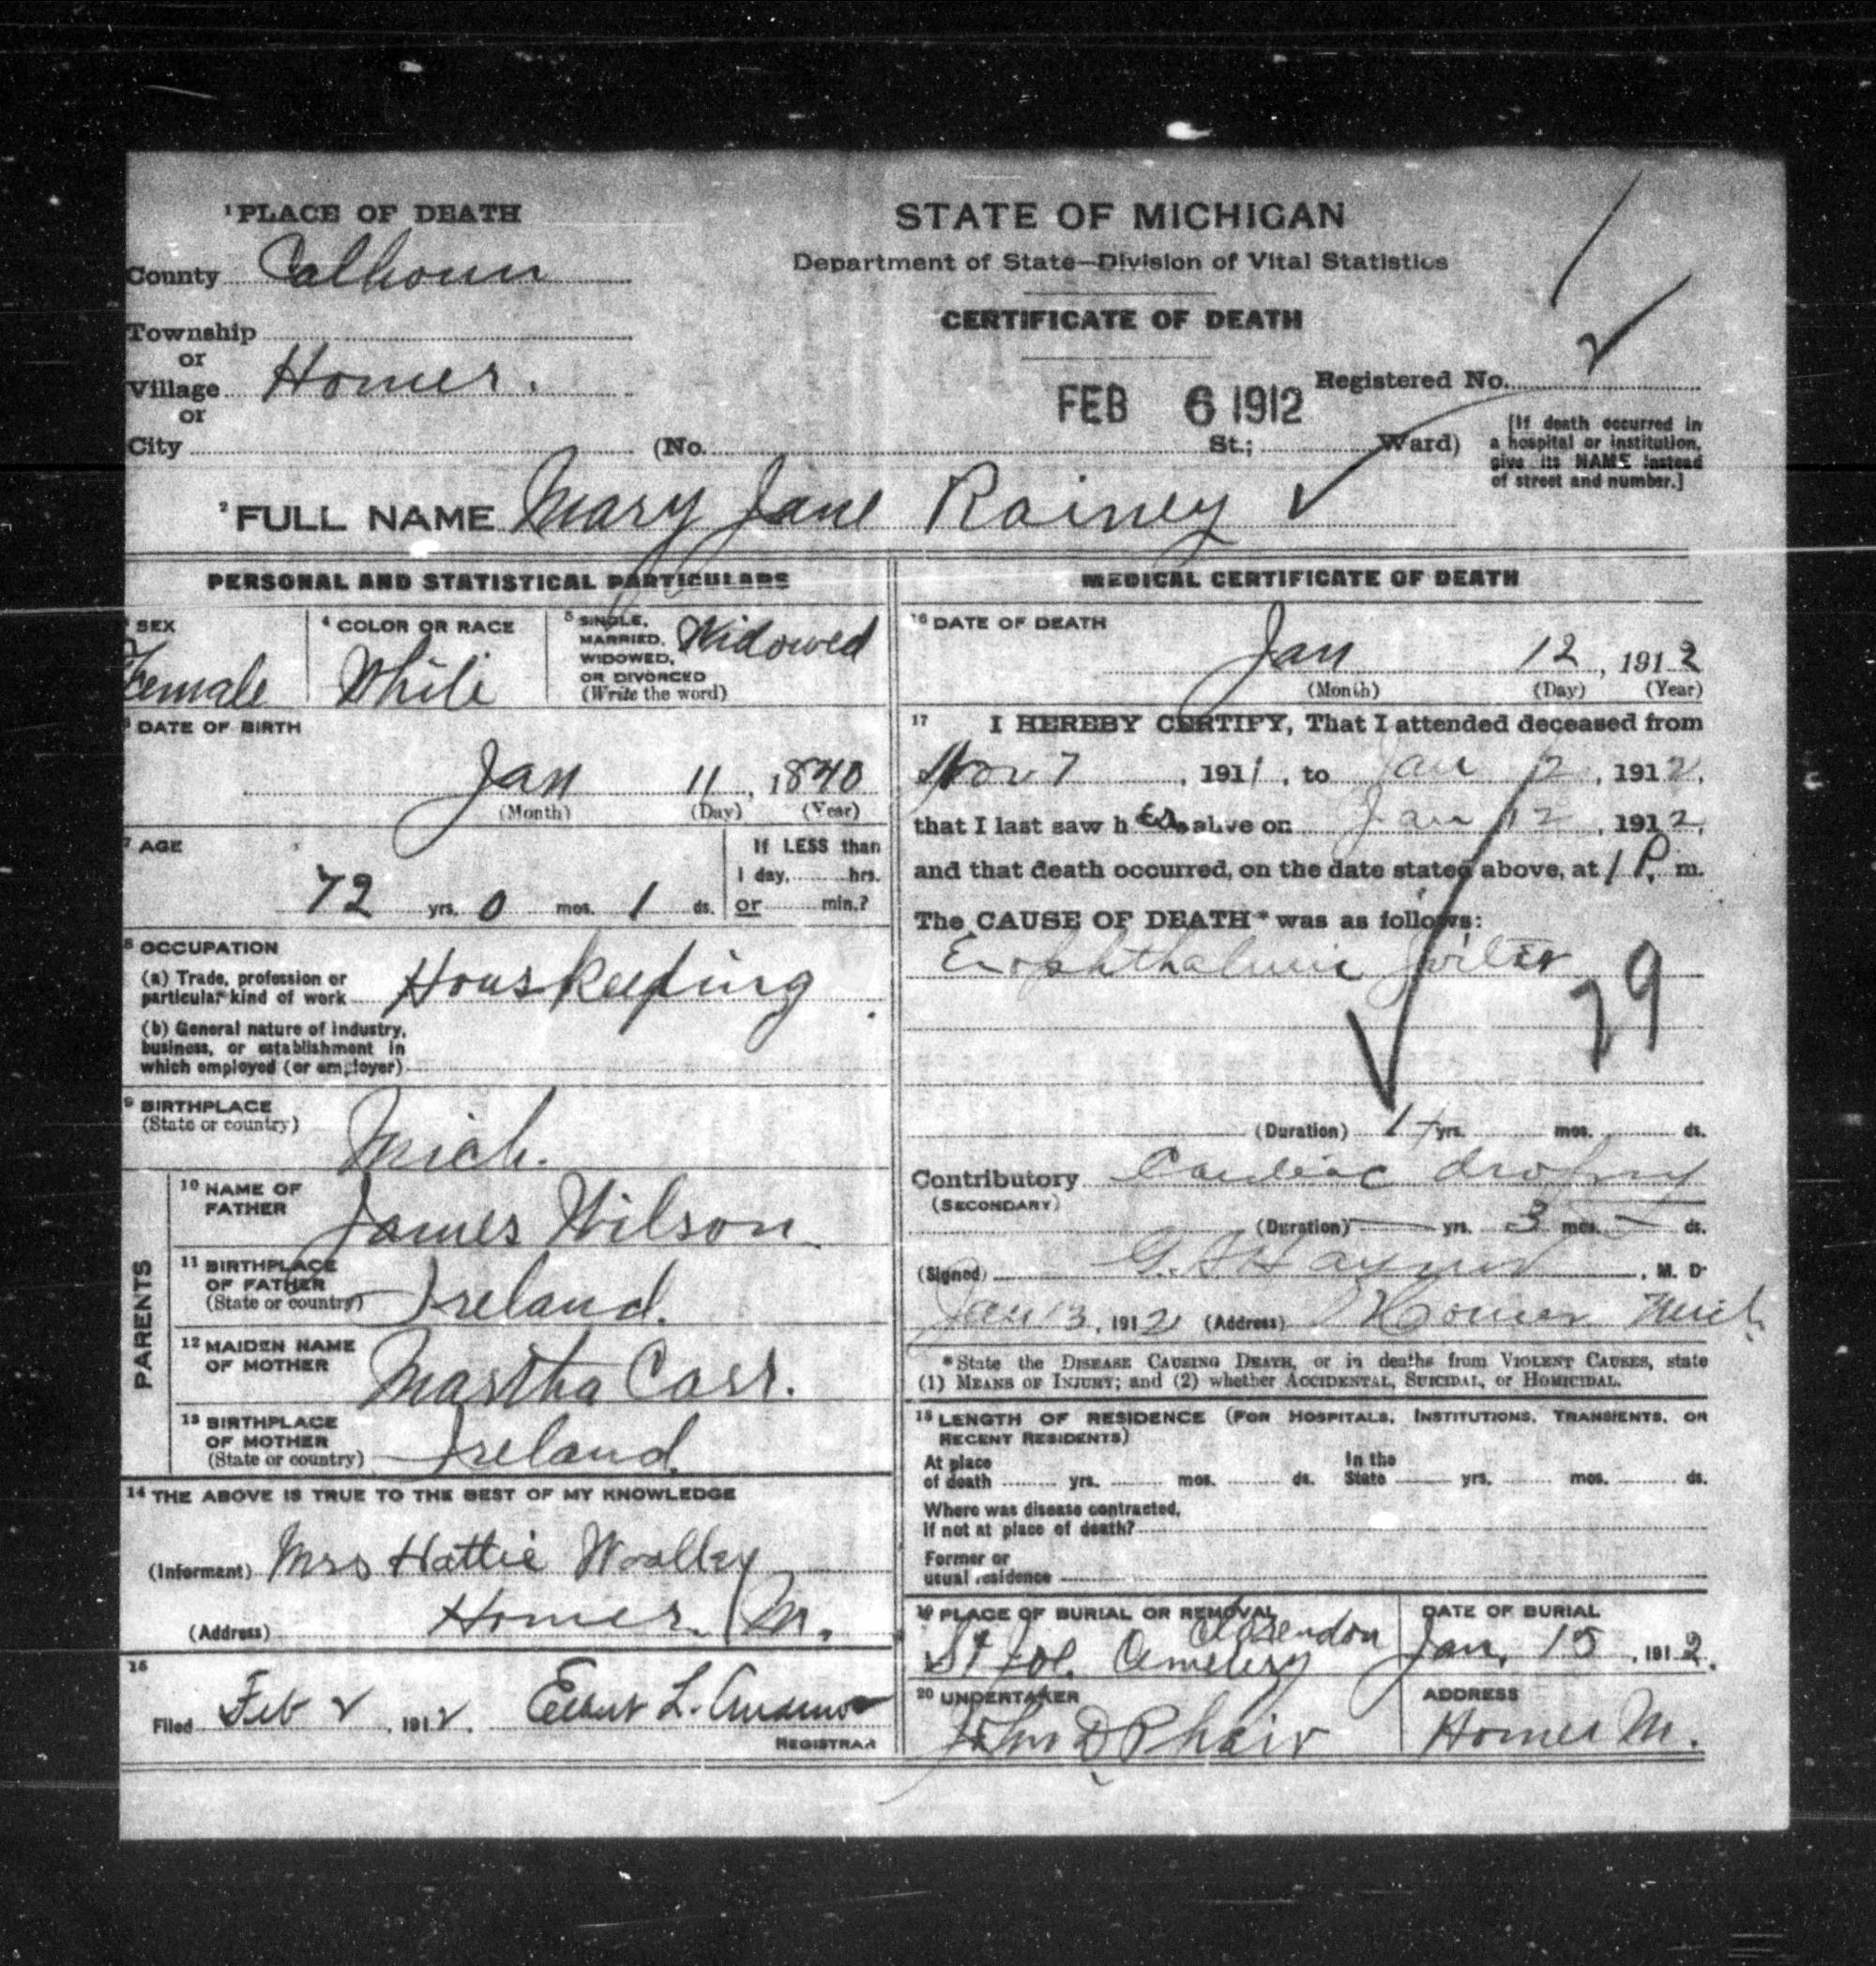 1 PLACE OF DEATH
County Calhoun
Township
or
Village Homer.
or
City (No. St.; Ward)
STATE OF MICHIGAN
Department of State—Division of Vital Statistics
CERTIFICATE OF DEATH
FEB 6 1912
Registered No. 2
[If death occurred in
a hospital or institution,
give its NAME instead
of street and number.]
2 FULL NAME Mary Jane Rainey
PERSONAL AND STATISTICAL PARTICULARS
3 SEX
Female
4 COLOR OR RACE
White
5 SINGLE,
MARRIED,
WIDOWED,
OR DIVORCED
(Write the word)
Widowed
6 DATE OF BIRTH
Jan 11, 1840
(Month) (Day) (Year)
7 AGE
72 yrs. 0 mos. 1 ds.
If LESS than
1 day, hrs.
or min.?
8 OCCUPATION
(a) Trade, profession or
particular kind of work Houskeeping
(b) General nature of industry,
business, or establishment in
which employed (or employer)
9 BIRTHPLACE
(State or country)
Mich.
PARENTS
10 NAME OF
FATHER
James Wilson
11 BIRTHPLACE
OF FATHER
(State or country)
Ireland.
12 MAIDEN NAME
OF MOTHER
Martha Carr.
13 BIRTHPLACE
OF MOTHER
(State or country)
Ireland.
14 THE ABOVE IS TRUE TO THE BEST OF MY KNOWLEDGE
(Informant) Mrs Hattie Woolley
(Address) Homer. M.
15
Filed Feb 2, 1912. L.
REGISTRAR
MEDICAL CERTIFICATE OF DEATH
16 DATE OF DEATH
Jan 12, 1912
(Month) (Day) (Year)
17 I HEREBY CERTIFY, That I attended deceased from
Nov 7, 1911, to Jan 12, 1912,
that I last saw her alive on Jan 12, 1912,
and that death occurred, on the date stated above, at 1 P. m.
The CAUSE OF DEATH* was as follows:
Exophthalmic Goiter
29
(Duration) 1+ yrs. mos. ds.
Contributory Cardiac dropsy
(SECONDARY)
(Duration) — yrs. 3 mos. — ds.
(Signed) M. D.
Jan 13, 1912 (Address) Homer Mich.
*State the DISEASE CAUSING DEATH, or in deaths from VIOLENT CAUSES, state
(1) MEANS OF INJURY; and (2) whether ACCIDENTAL, SUICIDAL, or HOMICIDAL.
18 LENGTH OF RESIDENCE (FOR HOSPITALS, INSTITUTIONS, TRANSIENTS, OR
RECENT RESIDENTS)
At place
of death yrs. mos. ds.
In the
State yrs. mos. ds.
Where was disease contracted,
If not at place of death?
Former or
usual residence
19 PLACE OF BURIAL OR REMOVAL
Clarendon
Cemetery
DATE OF BURIAL
Jan. 15, 1912.
20 UNDERTAKER
John D Phair
ADDRESS
Homer M.